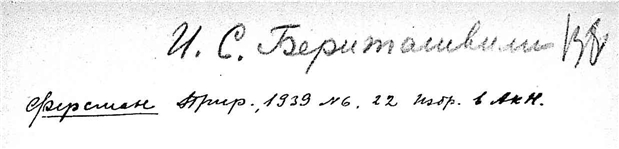 И. С. Бериташвили
Ферсман Прир., 1939 №6. 22 избр. в Ак Н.